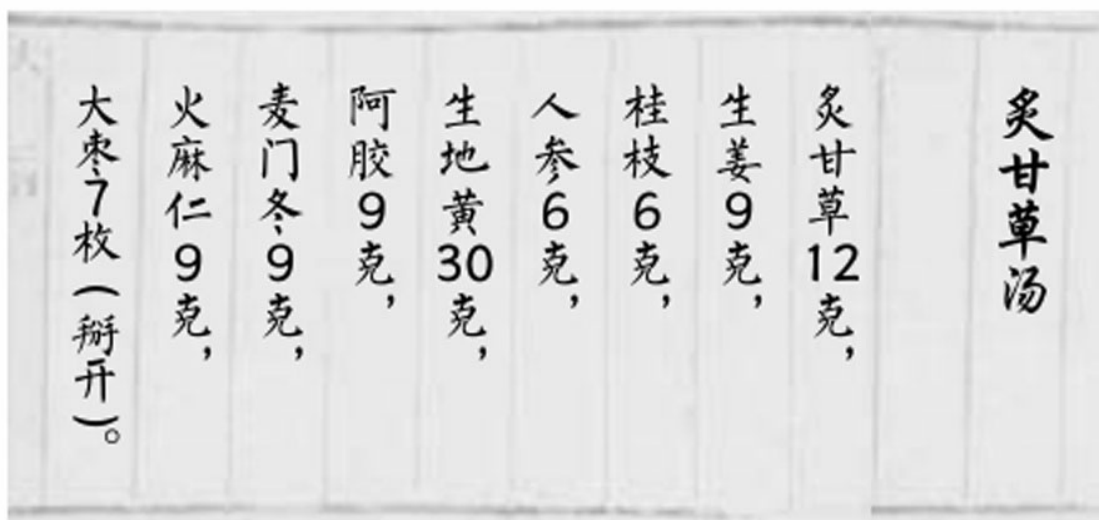 炙甘草汤
炙甘草12克，
生姜9克，
桂枝6克，
人参6克，
生地黄30克，
阿胶9克，
麦门冬9克，
火麻仁9克，
大枣7枚（掰开）。